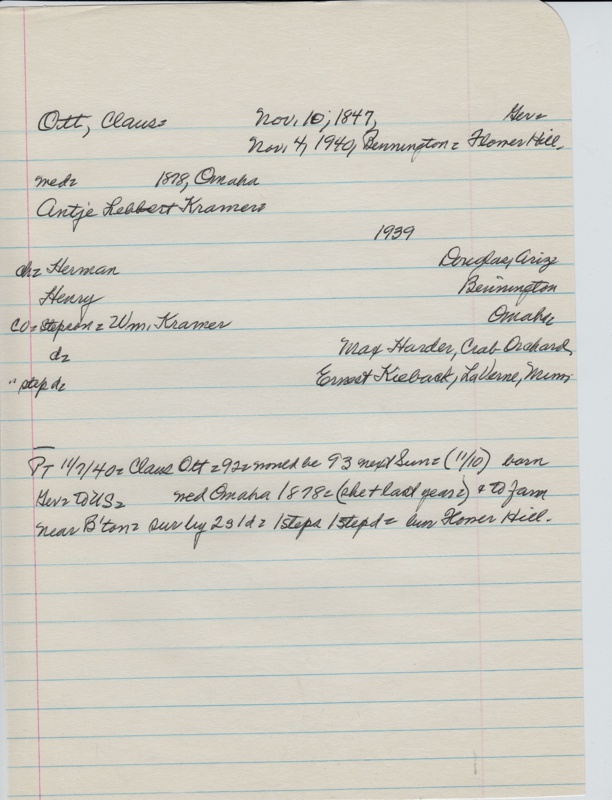 Ott, Claus= Nov. 10, 1847, Ger=
Nov. 4, 1940, Bennington= Flower Hill.
med= 1878, Omaha
Antje Lebbert Kramer=
1939
ch= Herman Douglas, Ariz=
Henry Bennington
co= Stepson= Wm. Kramer Omaha
d= Max Harder, Crab Orchard,
" step d= Ernest Kieback, LaVerne, Minn
PT 11/7/40= Claus Ott =92= would be 93 next Sun= (11/10) born
Ger= to US= med Omaha 1878= (she + last year=) & to farm
near B'ton= sur by 2s 1d= 1steps 1stepd= bur Flower Hill.